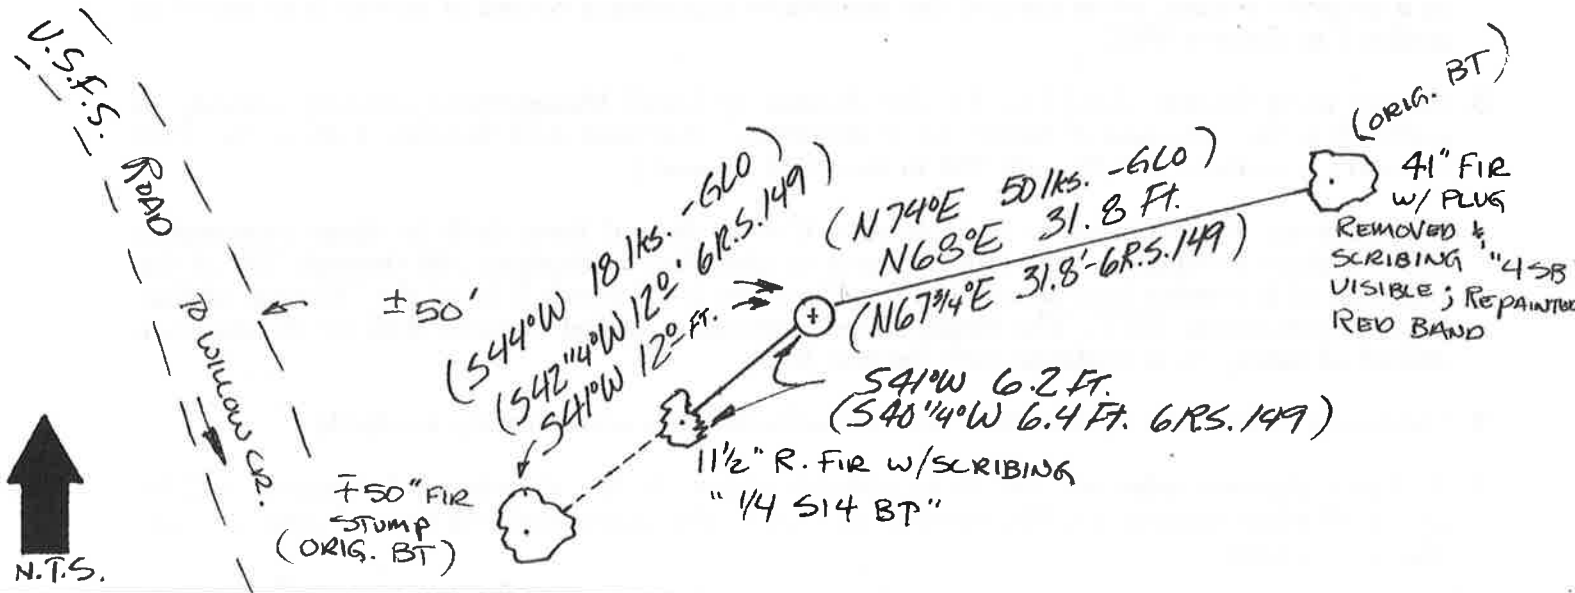 U.S.F.S. ROAD
TO WILLOW CR.
± 50'
(S44°W 18 lks. -GLO)
(S42 1/4°W 12º' 6R.S.149)
S41°W 12º FT.
(N74°E 50 lks. -GLO)
N68°E 31.8 Ft.
(N67 3/4°E 31.8'-6R.S.149)
(ORIG. BT)
41" FIR
W/ PLUG
REMOVED &
SCRIBING "4SB"
VISIBLE; REPAINTED
RED BAND
S41°W 6.2 Ft.
(S40 1/4°W 6.4 Ft. 6R.S.149)
11 1/2" R. FIR W/SCRIBING
" 1/4 S14 BT"
∓50" FIR
STUMP
(ORIG. BT)
N.T.S.